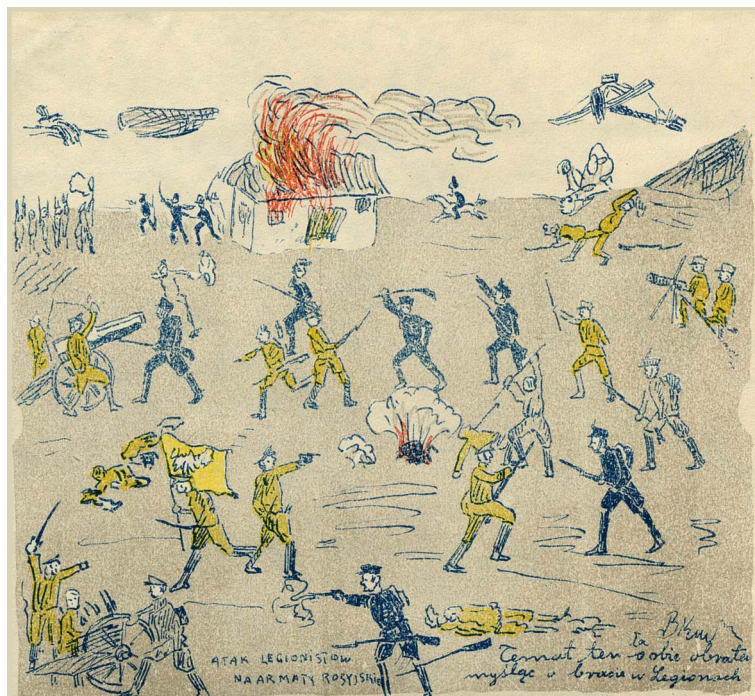 ATAK LEGIONISTÓW
NA ARMATY ROSYJSKIE
Temat ten ja sobie obrałem
myśląc o bracie w Legionach